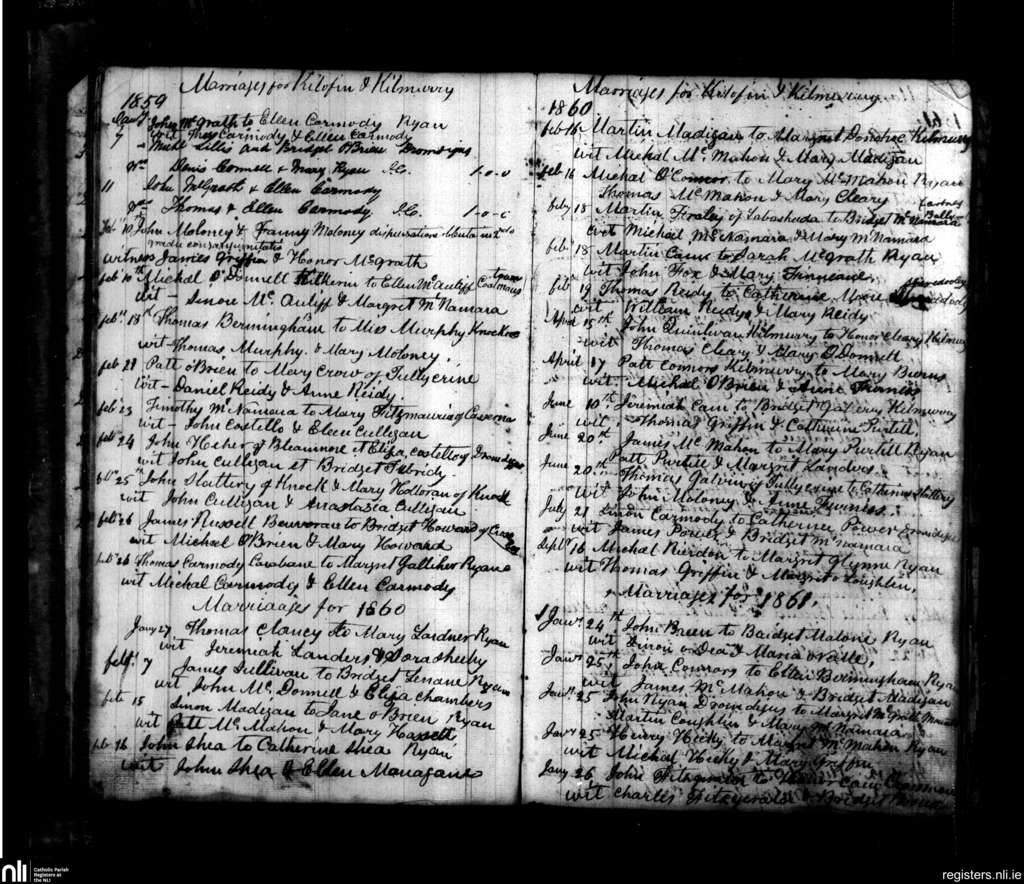 Marriages for Kilofin & Kilmurry
1859
Jany 7 John McGrath to Ellen Carmody Ryan
7 wit Thos Carmody & Ellen Carmody
Michl Lillis and Bridget O'Brien
Denis Connell & Mary Ryan 1-0-0
11 John McGrath & Ellen Carmody
Thomas & Ellen Carmody 1-0-0
Feb 10 John Moloney & Fanny Moloney dispensatione obtenta in 2do
gradu consanguinitatis
witness James Griffin & Honor McGrath
feb 10th Michael O'Donnell Kilkerin to Ellen McAuliff Coolmeen
wit - Sinon Mc Auliff & Margret McNamara
feb. 18th Thomas Bermingham to Miss Murphy
wit - Thomas Murphy & Mary Moloney.
feb 21 Patt O'Brien to Mary Crow of Tullycrine
wit - Daniel Reidy & Anne Reidy.
feb 23 Timothy McNamara to Mary Fitzmaurice of
wit - John Costello & Ellen Culligan
feb 24 John Heher of to Eliza Costello of
wit John Culligan et Bridget Tubridy
25 John Slattery of Knock & Mary Holloran of Knock
wit John Culligan & Anastasia Culligan
feb 26 James Russell to Bridget Howard of
wit Michael O'Brien & Mary Howard
feb 26 Thomas Carmody to Margret Galliher Ryan
wit Michal Carmody & Ellen Carmody
Marriages for 1860
Jany 27 Thomas Clancy to Mary Lardner Ryan
wit Jeremiah Landers & Dora Sheehy
feby 7 James Sullivan to Bridget Lenane Ryan
wit John Mc Donnell & Eliza Chambers
feb 15 Sinon Madigan to Jane O Brien Ryan
wit Patt McMahon & Mary Hassett
feb 16 John Shea to Catherine Shea Ryan
wit John Shea & Ellen Managane
Marriages for Kilofin & Kilmurry
1860
feb 16 Martin Madigan to Margret Donohoe Kilmurry
wit Michal McMahon & Mary Madigan
feb 16 Michal O'Connor to Mary McMahon Ryan
Thomas McMahon & Mary Cleary
feby 18 Martin Feraley of Labasheda to Bridget McNamara
wit Michael McNamara & Mary McNamara
feb 18 Martin to Sarah McGrath Ryan
wit John Fox & Mary Finneane
feb 19 Thomas Reidy to Catherine
wit William Reidy & Mary Reidy
April 15th John Quinlivan Kilmurry to Honor Cleary Kilmurry
wit Thomas Cleary & Mary O'Donnell
April 17 Patt Connors Kilmurry to Mary Burns
wit Michal O'Brien & Anne
June 10th Jeremiah to Bridget Kilmurry
wit Thomas Griffin & Catherine Purtell
June 20th James McMahon to Mary Purtell Ryan
Patt Purtell & Margrit Landers
June 20th Thomas Galvin of Tullycrine to Catherine Slattery
wit John Moloney & Anne
July 21 Sinon Carmody to Catherine Power
wit James Power & Bridget McNamara
Septr 16 Michael Riordon to Margrit Glynne Ryan
wit Thomas Griffin & Margrit O Loughlin
Marriages for 1861.
Jany 24th John Breen to Bridget Malone Ryan
wit Sinon O Dea & Maria
Jany 25 John Connors to Ellen Bermingham Ryan
wit James McMahon & Bridget Madigan
Jany 25 John Ryan to Margrit McGrath
Martin Coughlin & Mary McNamara
Jany 25 Henry Hickey to Margret McMahon Ryan
wit Michal Hickey & Mary Griffin
Jany 26 John Fitzgerald to
wit Charles Fitzgerald & Bridget
nli
Catholic Parish
Registers at
the NLI
registers.nli.ie